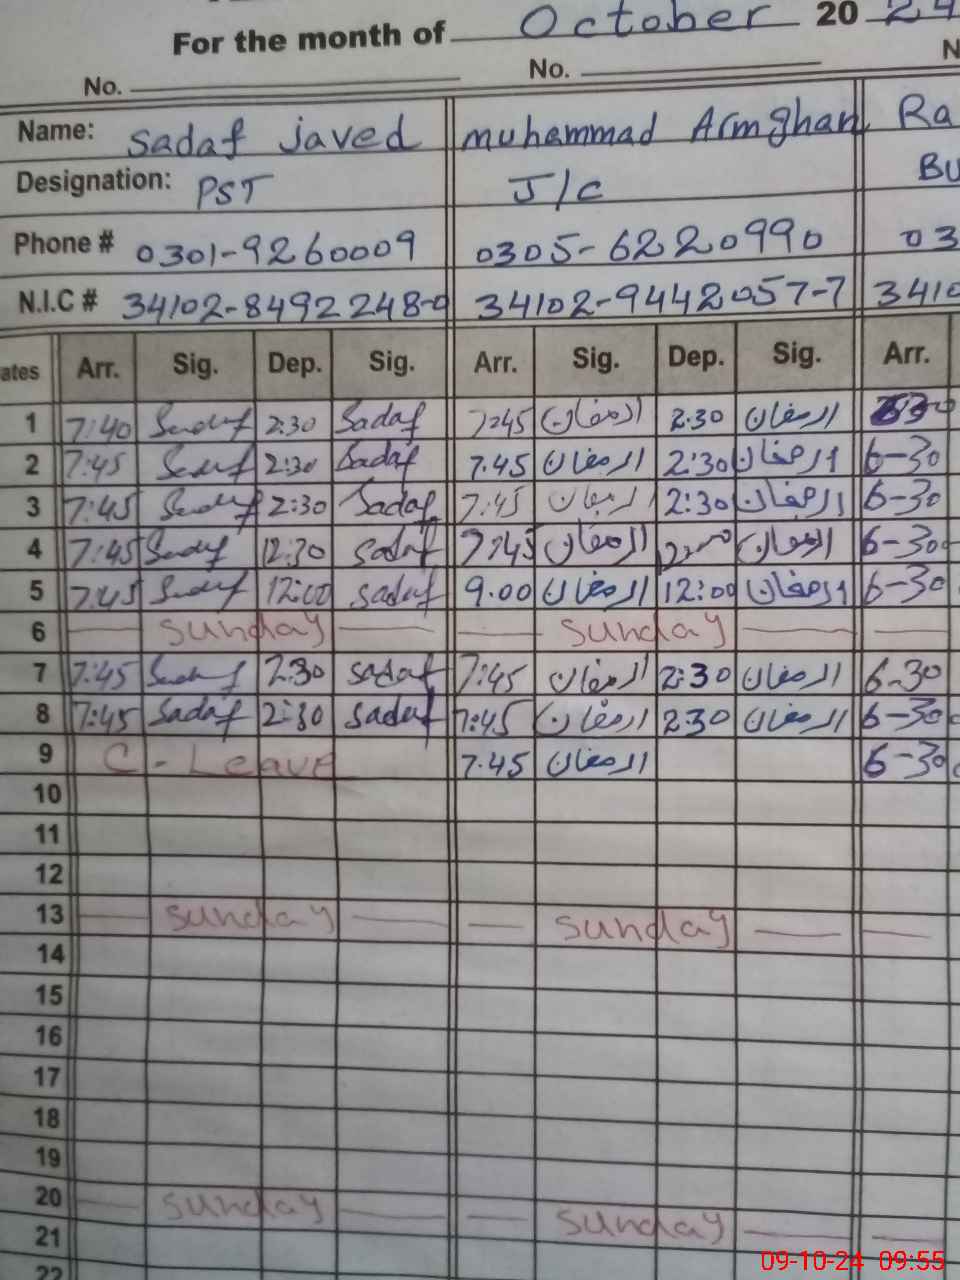 For the month of October 20 24
No. No. N
Name: Sadaf Javed muhammad Armghan Ra
Designation: PST J/C Bu
Phone # 0301-9260009 0305-6220990 03
N.I.C # 34102-8492248-0 34102-9442057-7 3410
ates Arr. Sig. Dep. Sig. Arr. Sig. Dep. Sig. Arr.
1 7:40 Sadaf 2:30 Sadaf 7:45 ارمغان 2:30 ارمغان
2 7:45 Sadaf 2:30 Sadaf 7.45 ارمغان 2:30 ارمغان 6-30
3 7:45 Sadaf 2:30 Sadaf 7:45 ارمغان 2:30 ارمغان 6-30
4 7:45 Sadaf 12:30 sadaf 7:45 ارمغان ارمغان 6-30
5 7:45 Sadaf 12:00 sadaf 9.00 ارمغان 12:00 ارمغان 6-30
6 sunday sunday
7 7:45 Sadaf 2:30 sadaf 7:45 ارمغان 2:30 ارمغان 6-30
8 7:45 Sadaf 2:30 sadaf 7:45 ارمغان 2:30 ارمغان 6-30
9 C-Leave 7.45 ارمغان 6-30
10
11
12
13 sunday sunday
14
15
16
17
18
19
20 sunday sunday
21
22
09-10-24 09:55